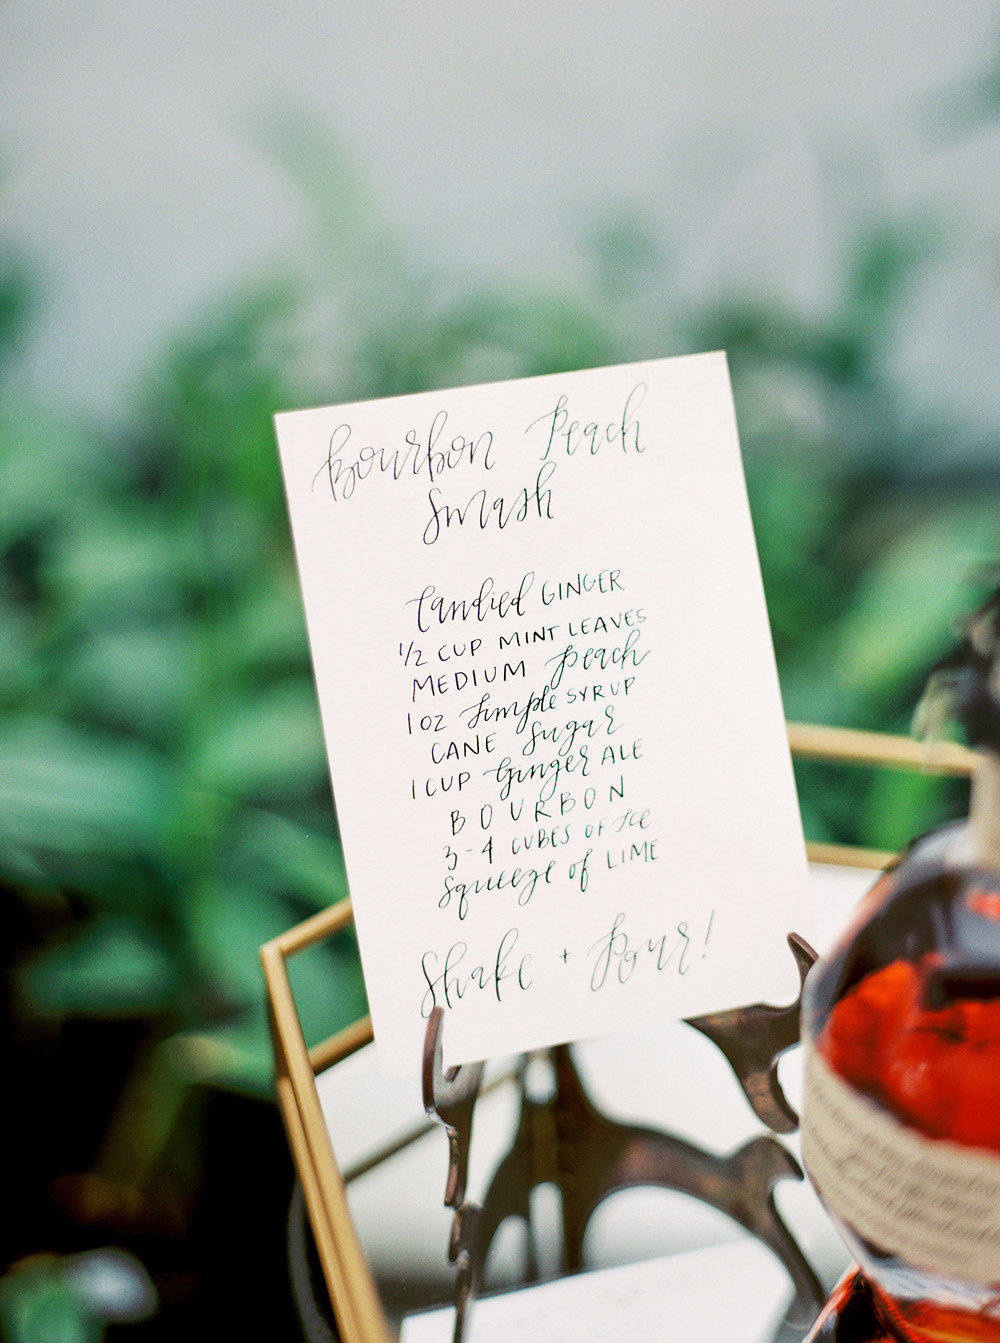 Bourbon Peach
Smash
Candied GINGER
1/2 CUP MINT LEAVES
MEDIUM Peach
1 OZ Simple SYRUP
CANE Sugar
1 CUP Ginger ALE
BOURBON
3-4 CUBES OF ICE
Squeeze of LIME
Shake + Pour!